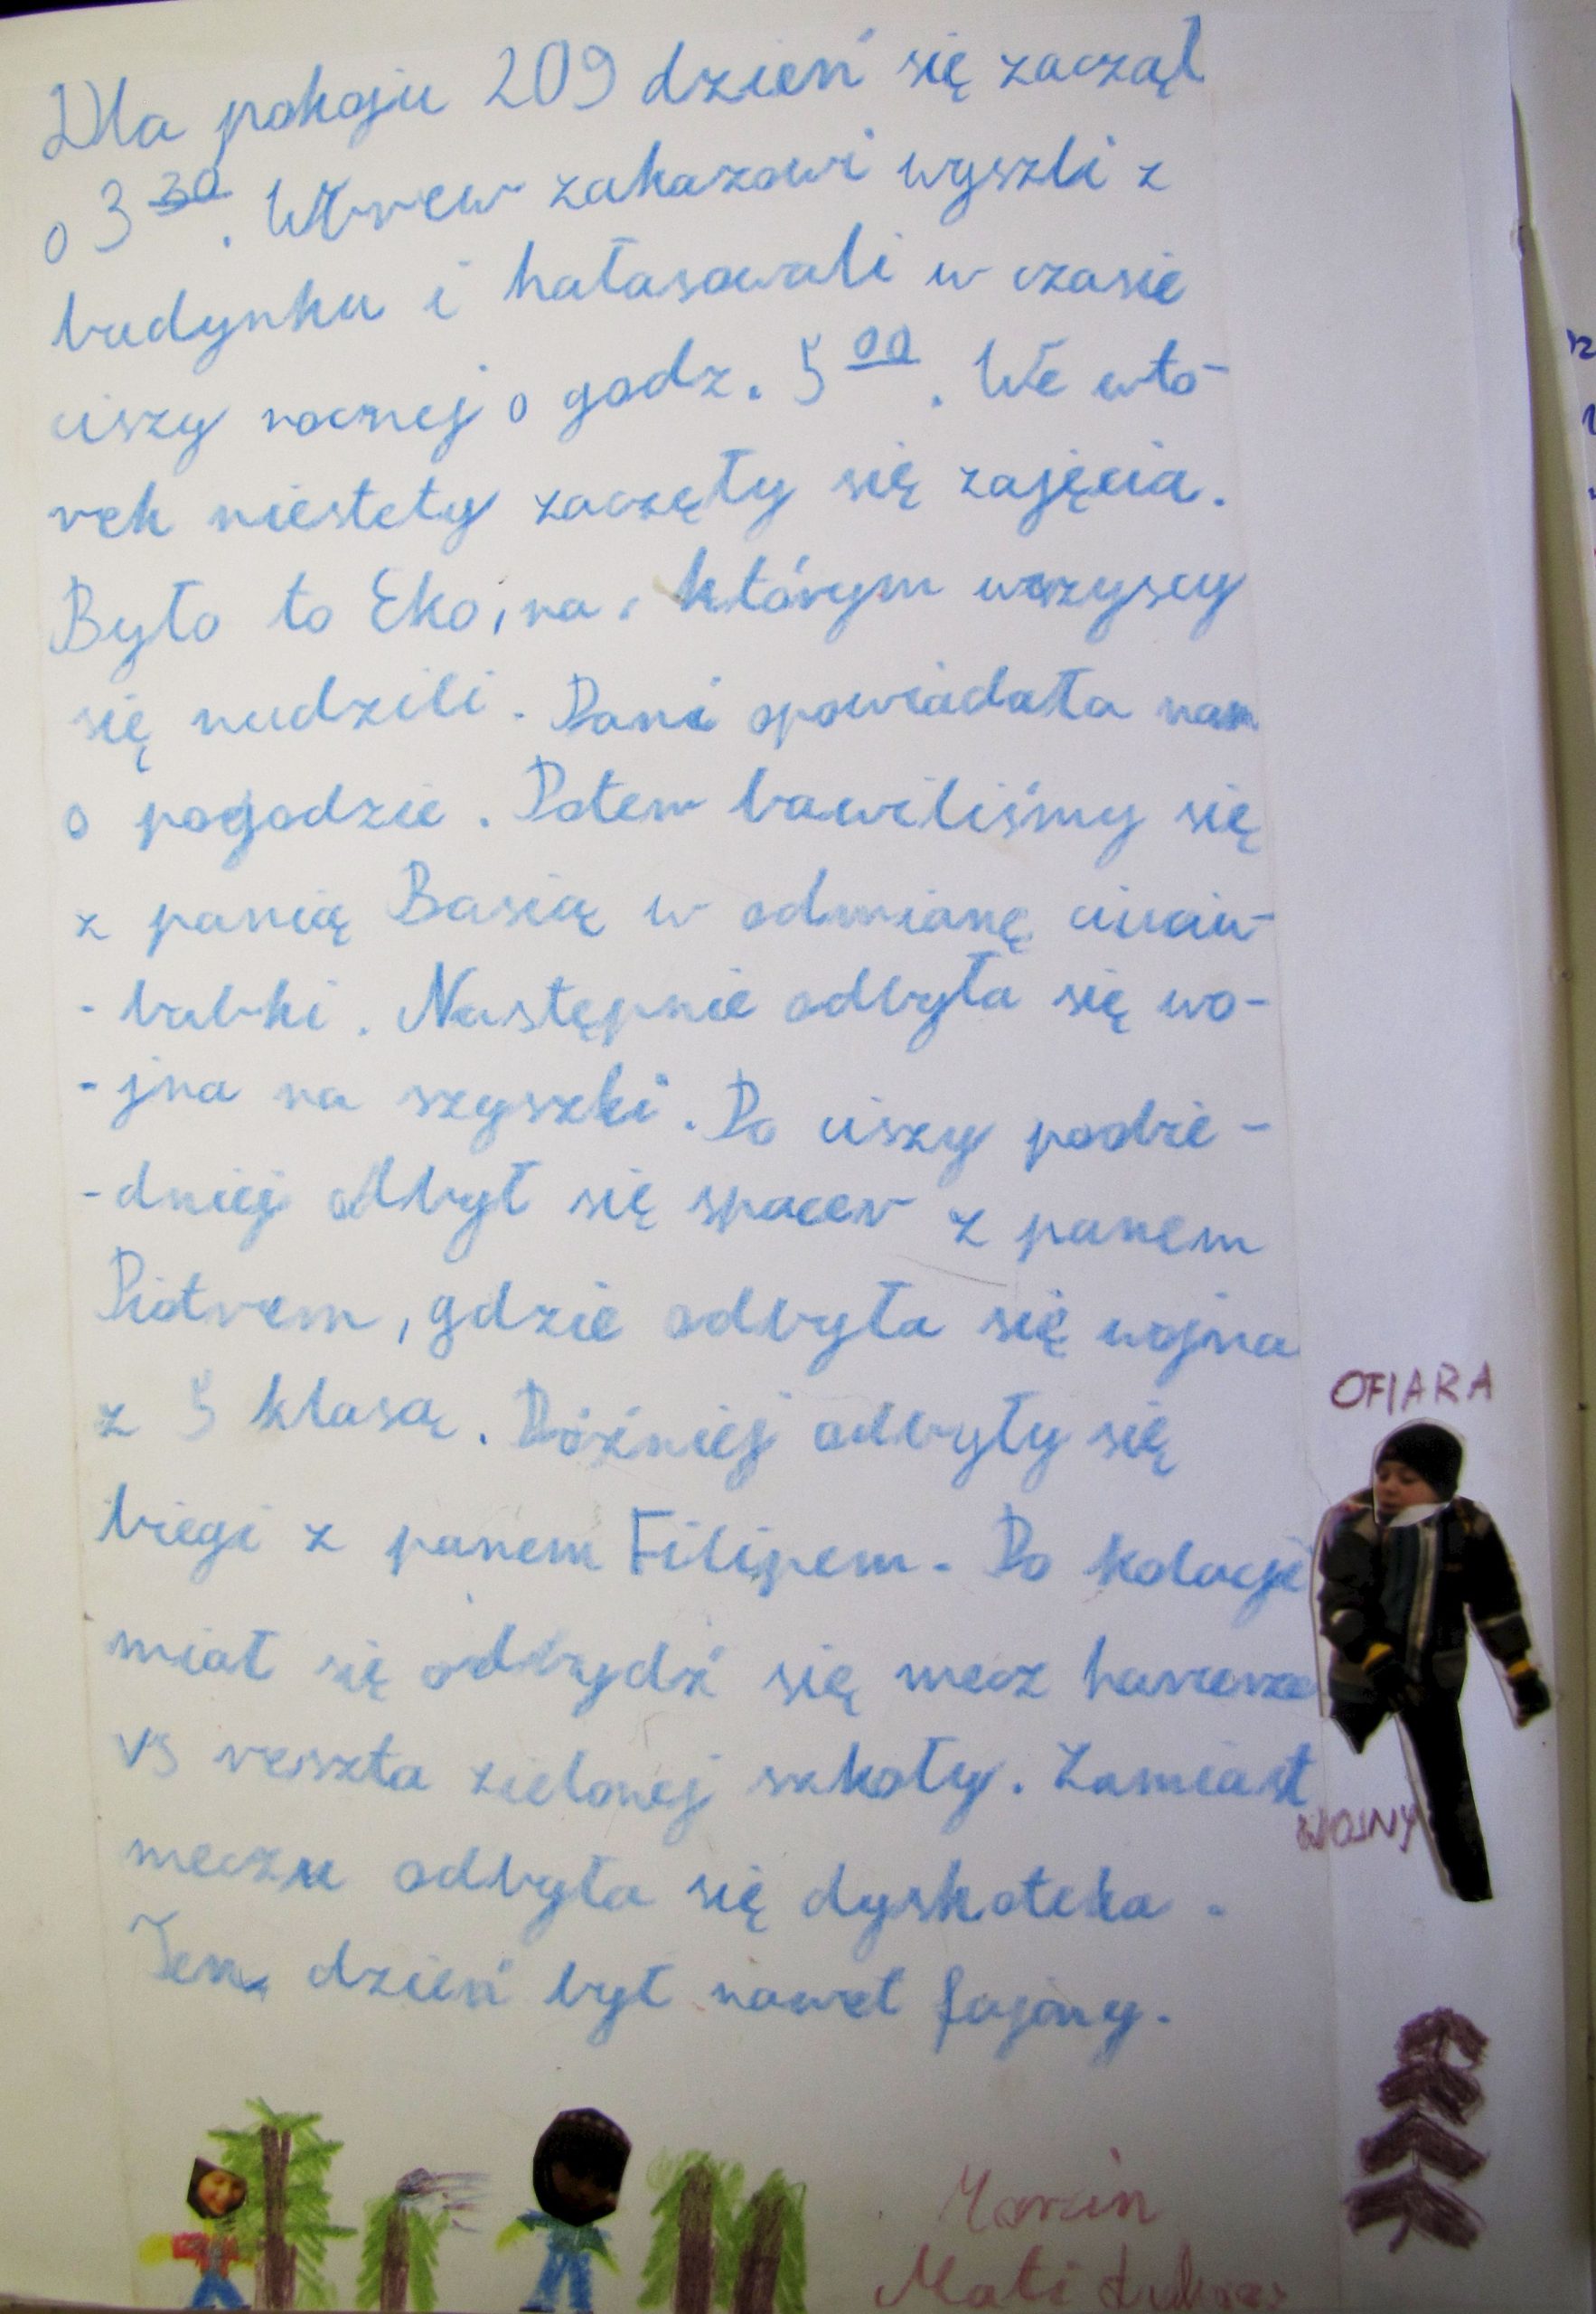 Dla pokoju 209 dzień się zaczął
o 3 30. Wbrew zakazowi wyszli z
budynku i hałasowali w czasie
ciszy nocnej o godz. 5 00. We wto-
rek niestety zaczęły się zajęcia.
Było to Eko, na którym wszyscy
się nudzili. Pani opowiadała nam
o pogodzie. Potem bawiliśmy się
z panią Basią w odmianę ciuciu-
-babki. Następnie odbyła się wo-
-jna na szyszki. Po ciszy poobie-
-dniej odbył się spacer z panem
Piotrem, gdzie odbyła się wojna
z 5 klasą. Później odbyły się
biegi z panem Filipem. Po kolacji
miał się odbydź się mecz harcerze
vs reszta zielonej szkoły. Zamiast
meczu odbyła się dyskoteka.
Ten dzień był nawet fajny.
OFIARA
WOJNY
Marcin
Mati Łukasz